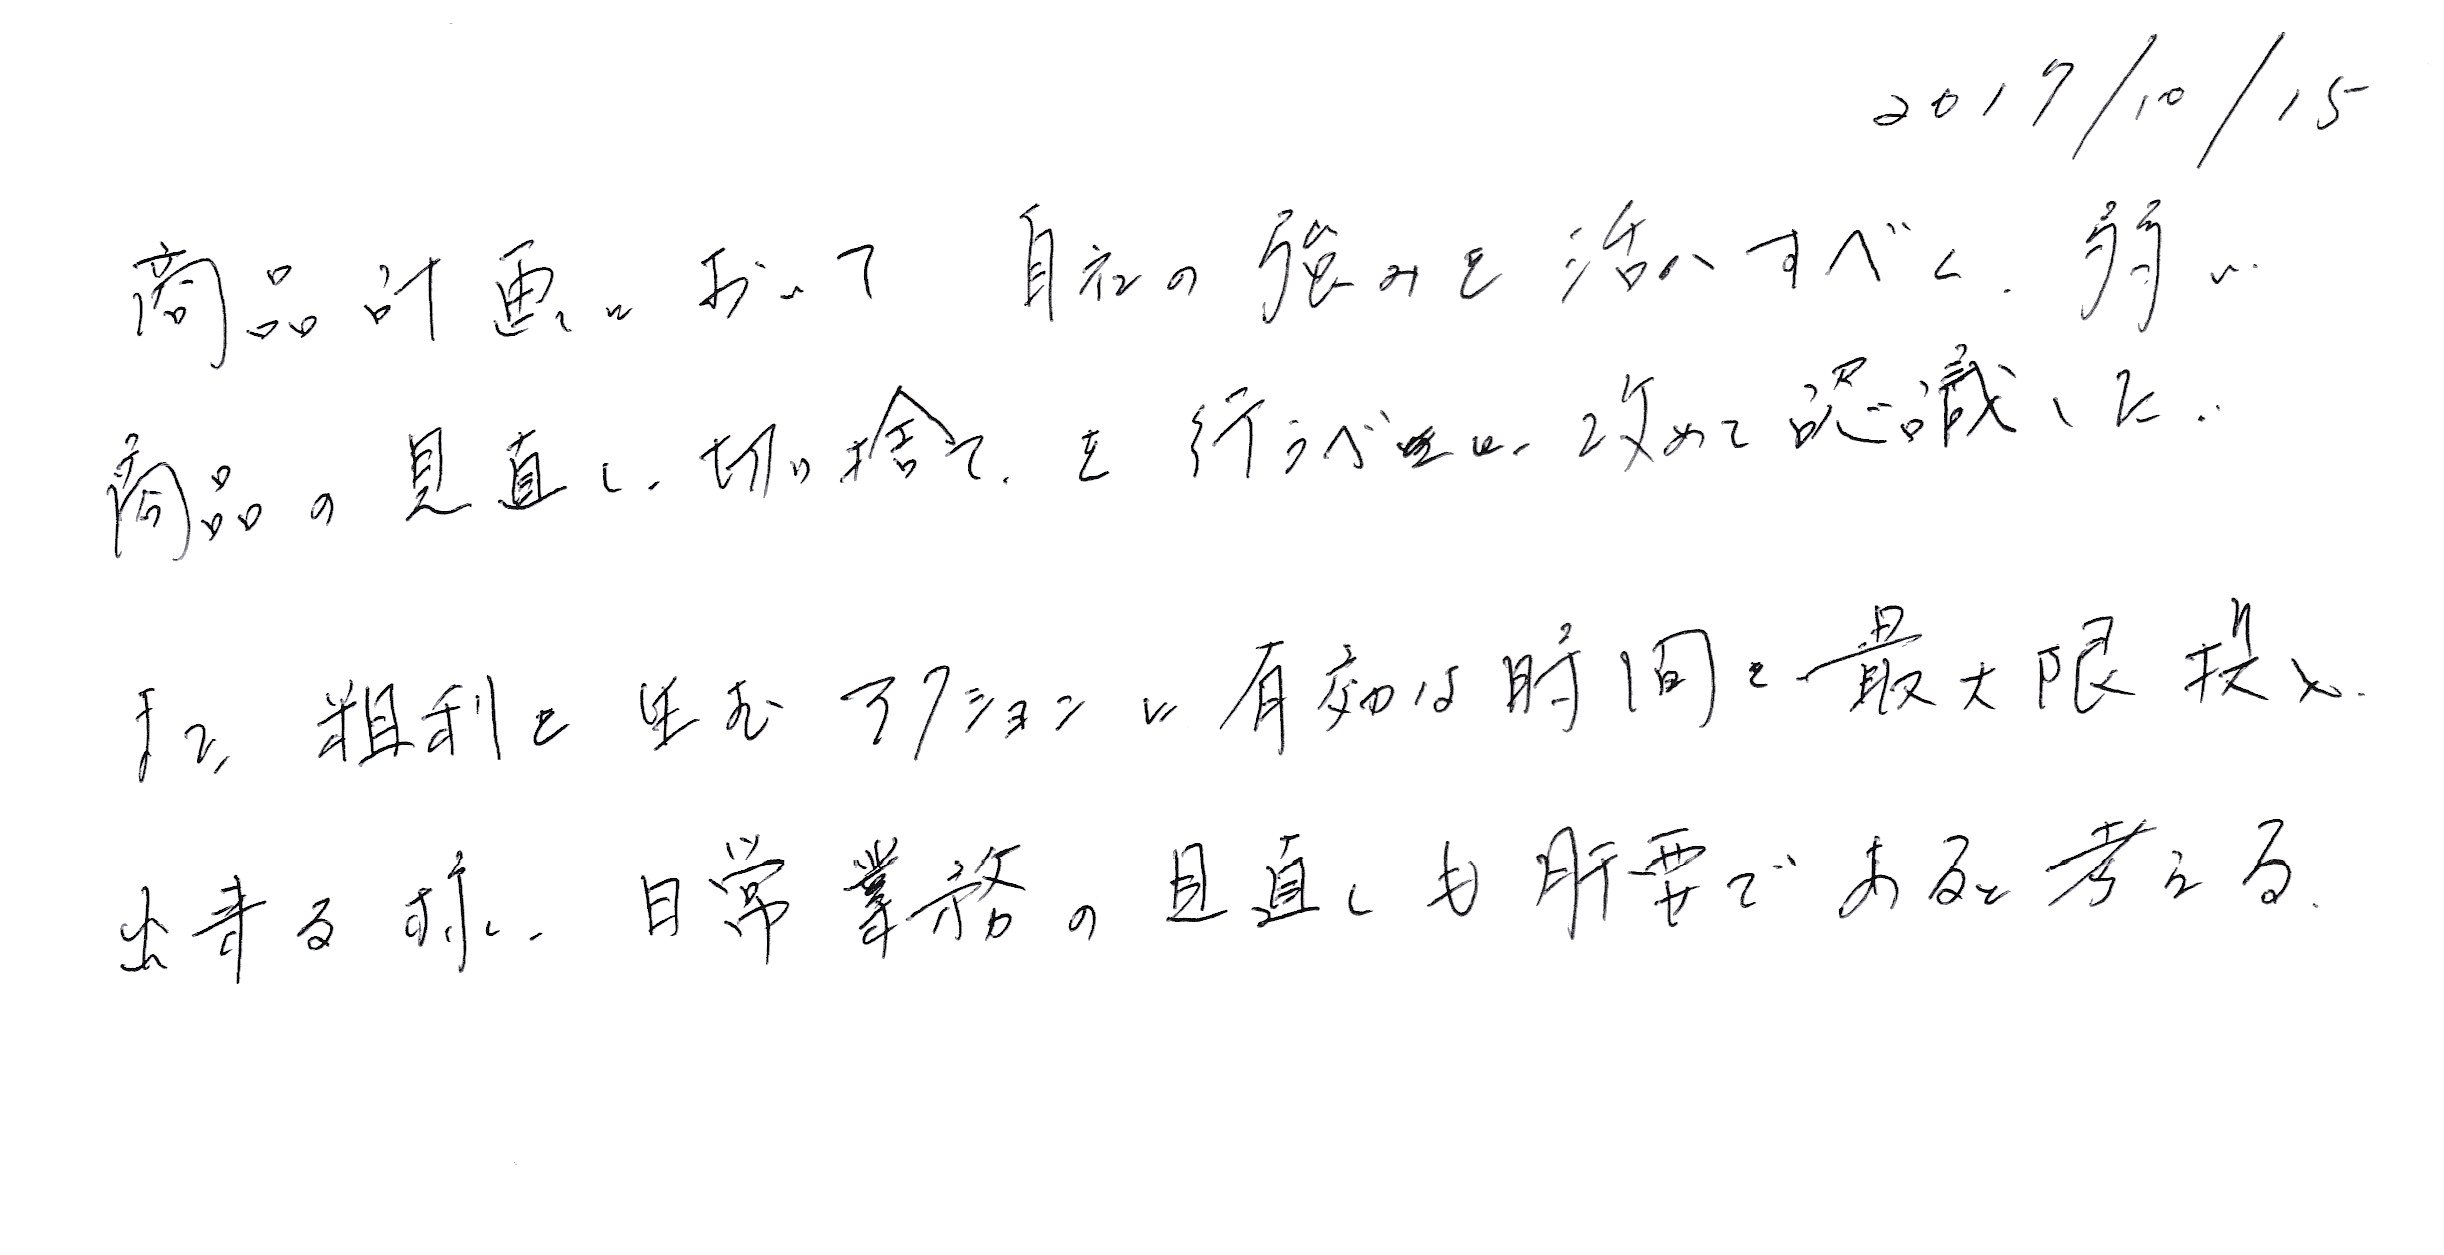 2017/10/15
商品計画において 自社の強みを活かすべく、弱い
商品の見直し、切り捨て、を行うべきと、改めて認識した。
また、粗利を生むアクションに有効な時間を最大限投入
出来る様に、日常業務の見直しも肝要であると考える。